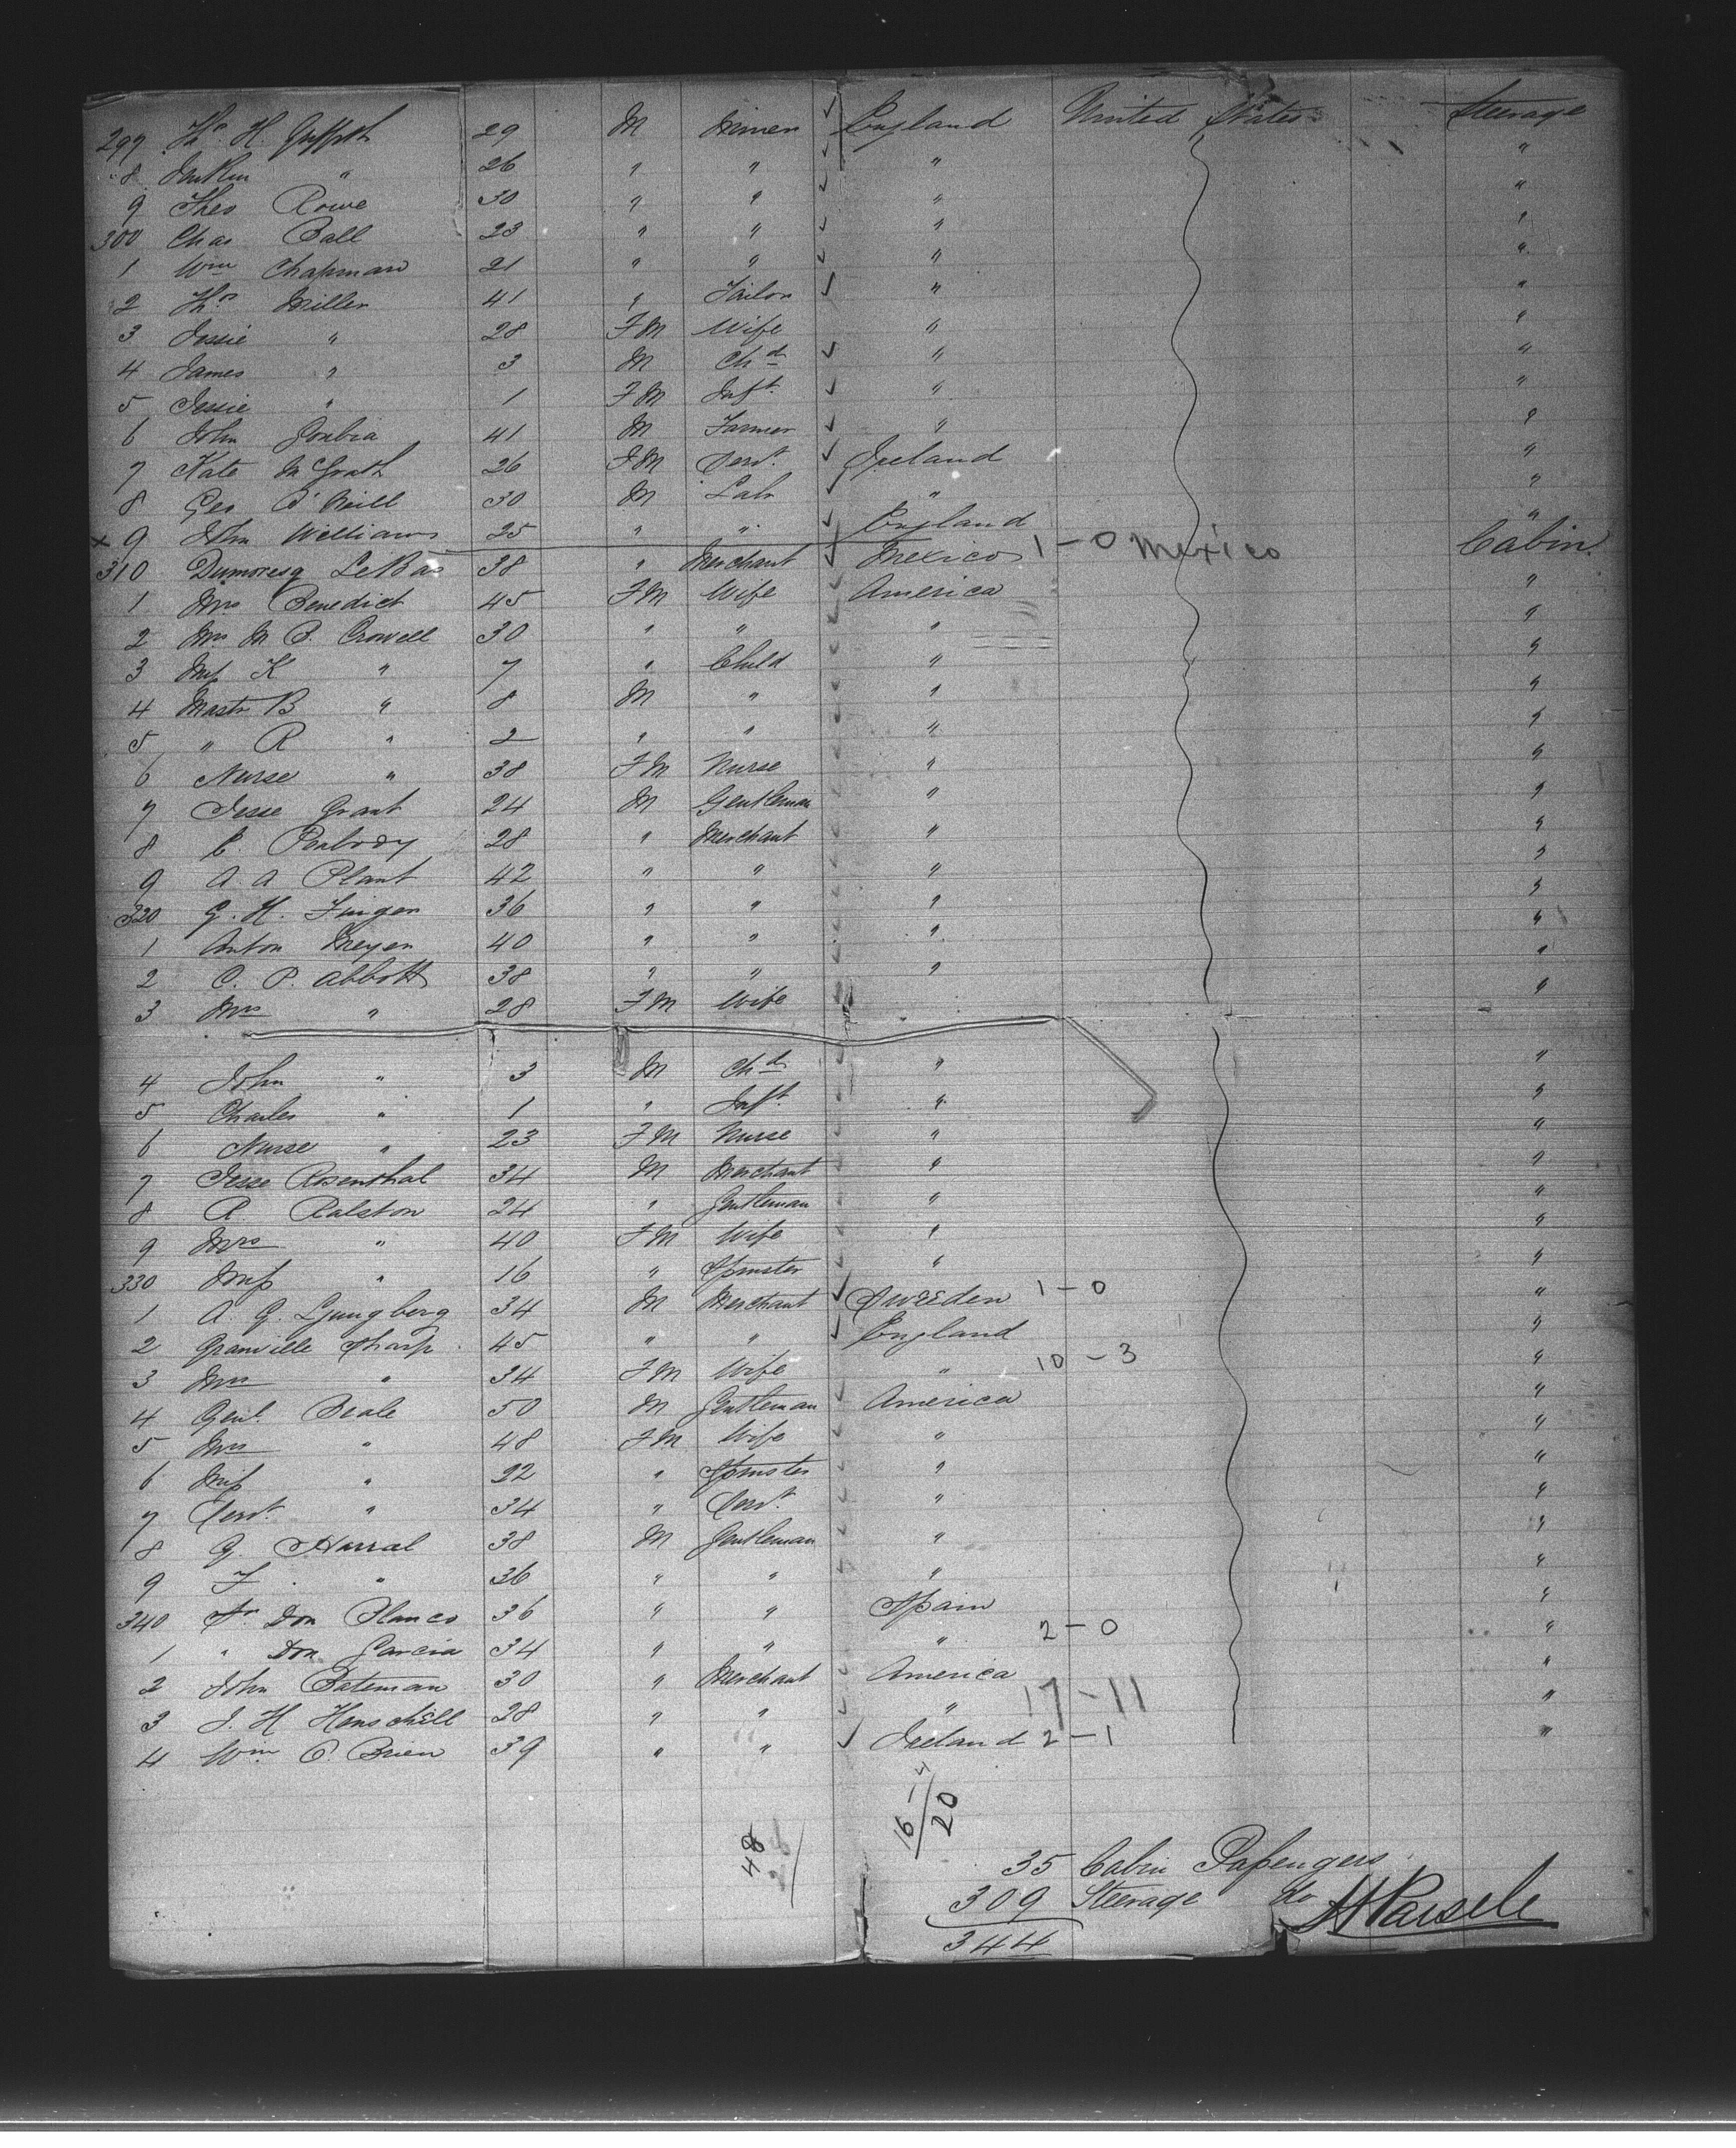 297 Ths. H. Griffith 29 M Miner England United States Steerage
8 " 26 " " " "
9 Thos Rowe 30 " " " "
300 Chas Ball 23 " " " "
1 Wm Chapman 21 " " " "
2 Ths Miller 41 " Tailor " "
3 Jessie " 28 FM Wife " "
4 James " 3 M Chd " "
5 Jessie " 1 FM Inft. " "
6 John 41 M Farmer " "
7 Kate McGrath 26 FM Servt. Ireland "
8 Geo O'Neill 30 M Labr " "
x 9 John Williams 25 " " England "
310 Dumoresq LeBas 38 " Merchant Mexico 1-0 Mexico Cabin.
1 Mrs Benedict 45 FM Wife America "
2 Mrs M B. Crowell 30 " " " "
3 Miss K " 7 " Child " "
4 Mastr B " 8 M " " "
5 " R " 2 " " " "
6 Nurse " 38 FM Nurse " "
7 Jesse Grant 24 M Gentleman " "
8 C. Peabody 28 " Merchant " "
9 A. A Plant 42 " " " "
320 G. H. Finger 36 " " " "
1 Anton Meyer 40 " " " "
2 C. P. Abbott 38 " " " "
3 Mrs " 28 FM Wife "
4 John " 3 M Chd " "
5 Charles " 1 " Inft. " "
6 Nurse " 23 FM Nurse " "
7 Jesse Rosenthal 34 M Merchant " "
8 R. Ralston 24 " Gentleman " "
9 Mrs " 40 FM Wife " "
330 Miss " 16 " Spinster " "
1 A. G. Ljungberg 34 M Merchant Sweeden 1-0 "
2 Granville Sharp 45 " " England "
3 Mrs " 34 FM Wife " 10-3 "
4 Genl. Beale 50 M Gentleman America "
5 Mrs " 48 FM Wife " "
6 Miss " 22 " Spinster " "
7 Servt. " 34 " Servt. " "
8 G. Harral 38 M Gentleman " "
9 F. " 36 " " " "
340 Sr. Don Blanco 36 " " Spain "
1 " Don Garcia 34 " " " 2-0 "
2 John Bateman 30 " Merchant America "
3 J. H Henschell 28 " " " 17-11 "
4 Wm O. Brien 39 " " Ireland 2-1 "
48 16-4/20
35 Cabin Passengers
309 Steerage do
344